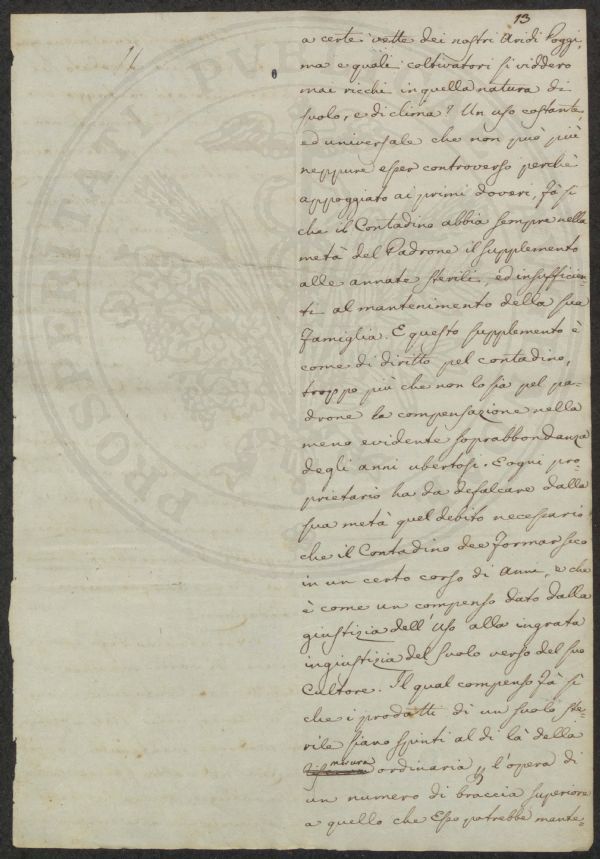 13
a certe vette dei nostri Aridi Poggi,
ma e quali coltivatori si viddero
mai ricchi in quella natura di
suolo, e di clima? Un uso costante,
ed universale che non può più
neppure esser controverso perchè
appoggiato ai primi doveri, fà si
che il Contadino abbia sempre nella
metà del Padrone il supplemento
alle annate sterili, ed insufficien-
ti al mantenimento della sua
famiglia. E questo supplemento è
come di diritto pel contadino,
troppo più che non lo sia pel pa-
drone la compensazione nella
meno evidente soprabbondanza
degli anni ubertosi. E ogni pro-
prietario ha da defalcare dalla
sua metà quel debito necessario,
che il Contadino dee formar seco
in un certo corso di Anni, e che
è come un compenso dato dalla
giustizia dell'Uso alla ingrata
ingiustizia del Suolo verso del suo
Cultore. Il qual compenso fà sì
che i prodotti di un suolo ste-
rile siano spinti al di là della
misura
ordinaria, l'opera di
un numero di braccia superiore
a quello che Esso potrebbe mante-
PROSPERITATI PUBLICAE